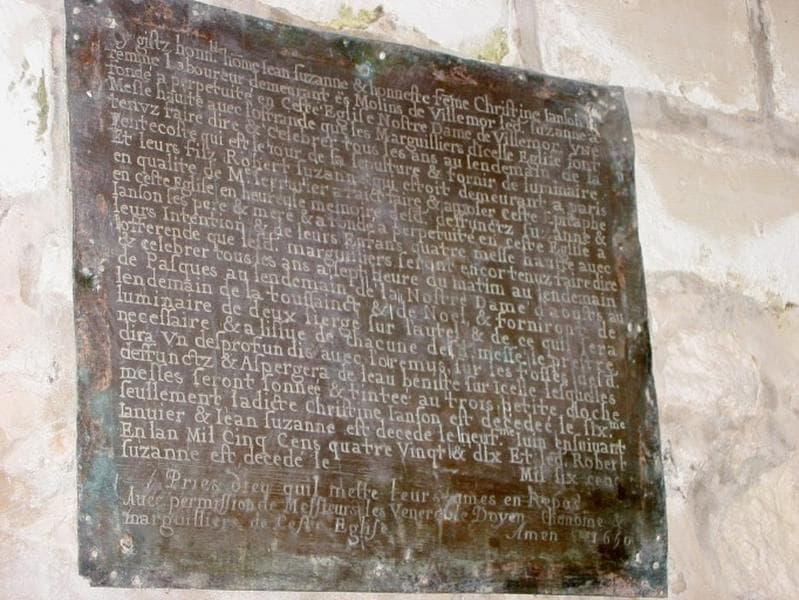 y gistz honn. home Jean Suzanne & honneste feme Christine Janson
femme Laboureur demeurant es Molins de Villemor led. Suzanne a
fondé a perpetuité en Ceste Eglise Nostre Dame de Villemor vne
Messe haute auec l'offrande que les Marguilliers dicelle Eglise sont
tenvz faire dire & celebrer tous les ans au lendemain de la
pentecoste qui est le iour de sa sepulture & fornir de luminaire
Et leurs filz Robert Suzanne qui estoit demeurant a paris
en qualité de Me serrurier a faict faire & apposer ceste Epitaphe
en ceste Eglise en heureuse memoire desd. deffunctz Suzanne &
Janson ses pere & mere & a fondé a perpetuité en ceste Eglise a
leurs Intention & de leurs Enfans quatre messe haute auec
lofferende que lesd. marguilliers seront encor tenuz faire dire
& celebrer tous les ans a sept heure du matin au lendemain
de Pasques au lendemain de la Nostre Dame d'aoust au
lendemain de la toussainct & de Noel & forniront de
luminaire de deux sierge sur lautel & de ce qui sera
necessaire & a lissue de chacune desd. messe le prestre
dira Vn desprofundis auec loremus sur les fosses desd.
deffunctz & Aspergera de leau beniste sur icelle lesquelles
messes seront sonnée & tintée au trois petite cloche
seullement ladicte Christine Janson est decedée le six.me
Ianuier & Jean Suzanne est decedé le neuf.me Iuin ensuiuant
En lan Mil Cinq Cens quatre Vingt & dix Et led. Robert
Suzanne est decedé le Mil six cens
Pries dieu qui mette leurs ames en Repos
Auec permission de Messieurs les Venerable Doyen Chanoine &
marguilliers de Ceste Eglise Amen